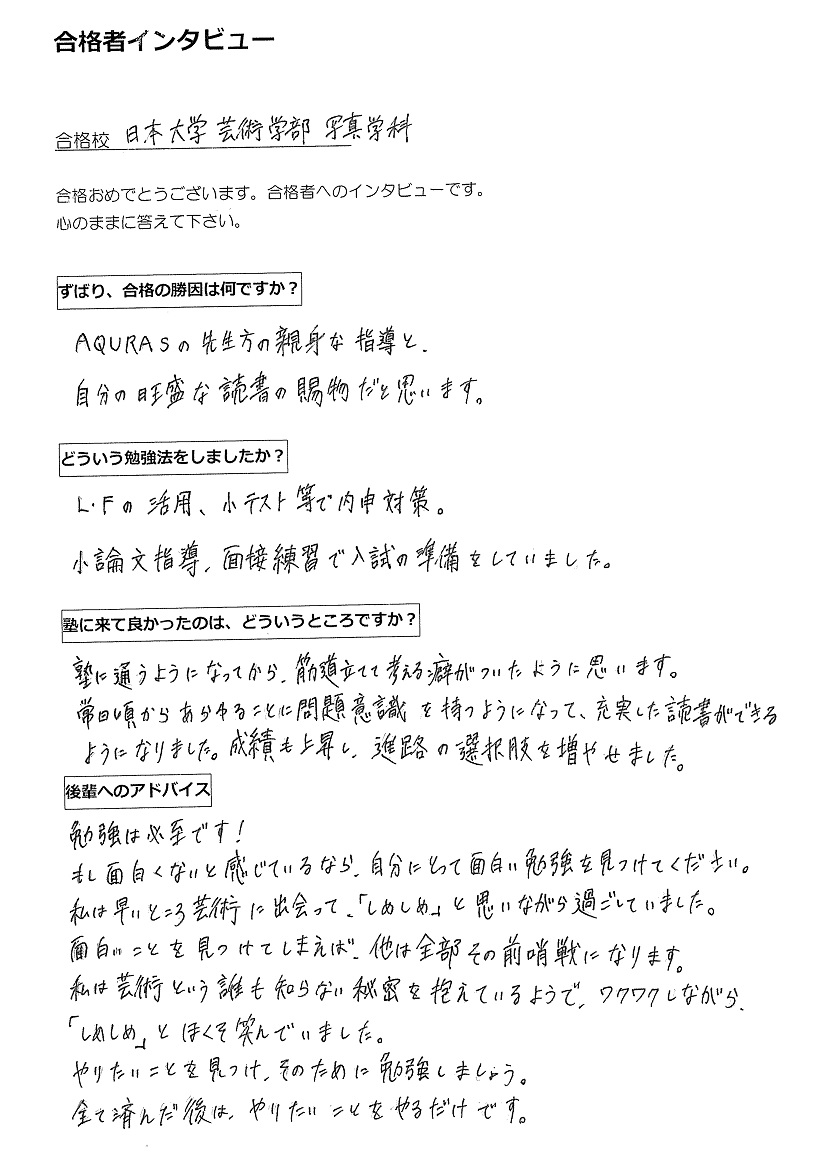 合格者インタビュー
合格校 日本大学 芸術学部 写真学科
合格おめでとうございます。合格者へのインタビューです。
心のままに答えて下さい。
ずばり、合格の勝因は何ですか？
AQURASの先生方の親身な指導と、
自分の旺盛な読書の賜物だと思います。
どういう勉強法をしましたか？
L・Fの活用、小テスト等で内申対策。
小論文指導、面接練習で入試の準備をしていました。
塾に来て良かったのは、どういうところですか？
塾に通うようになってから、筋道立てて考える癖がついたように思います。
常日頃からあらゆることに問題意識を持つようになって、充実した読書ができる
ようになりました。成績も上昇し、進路の選択肢を増やせました。
後輩へのアドバイス
勉強は必至です！
もし面白くないと感じているなら、自分にとって面白い勉強を見つけてください。
私は早いところ芸術に出会って、「しめしめ」と思いながら過ごしていました。
面白いことを見つけてしまえば、他は全部その前哨戦になります。
私は芸術という誰も知らない秘密を抱えているようで、ワクワクしながら、
「しめしめ」とほくそ笑んでいました。
やりたいことを見つけ、そのために勉強しましょう。
全て済んだ後は、やりたいことをやるだけです。